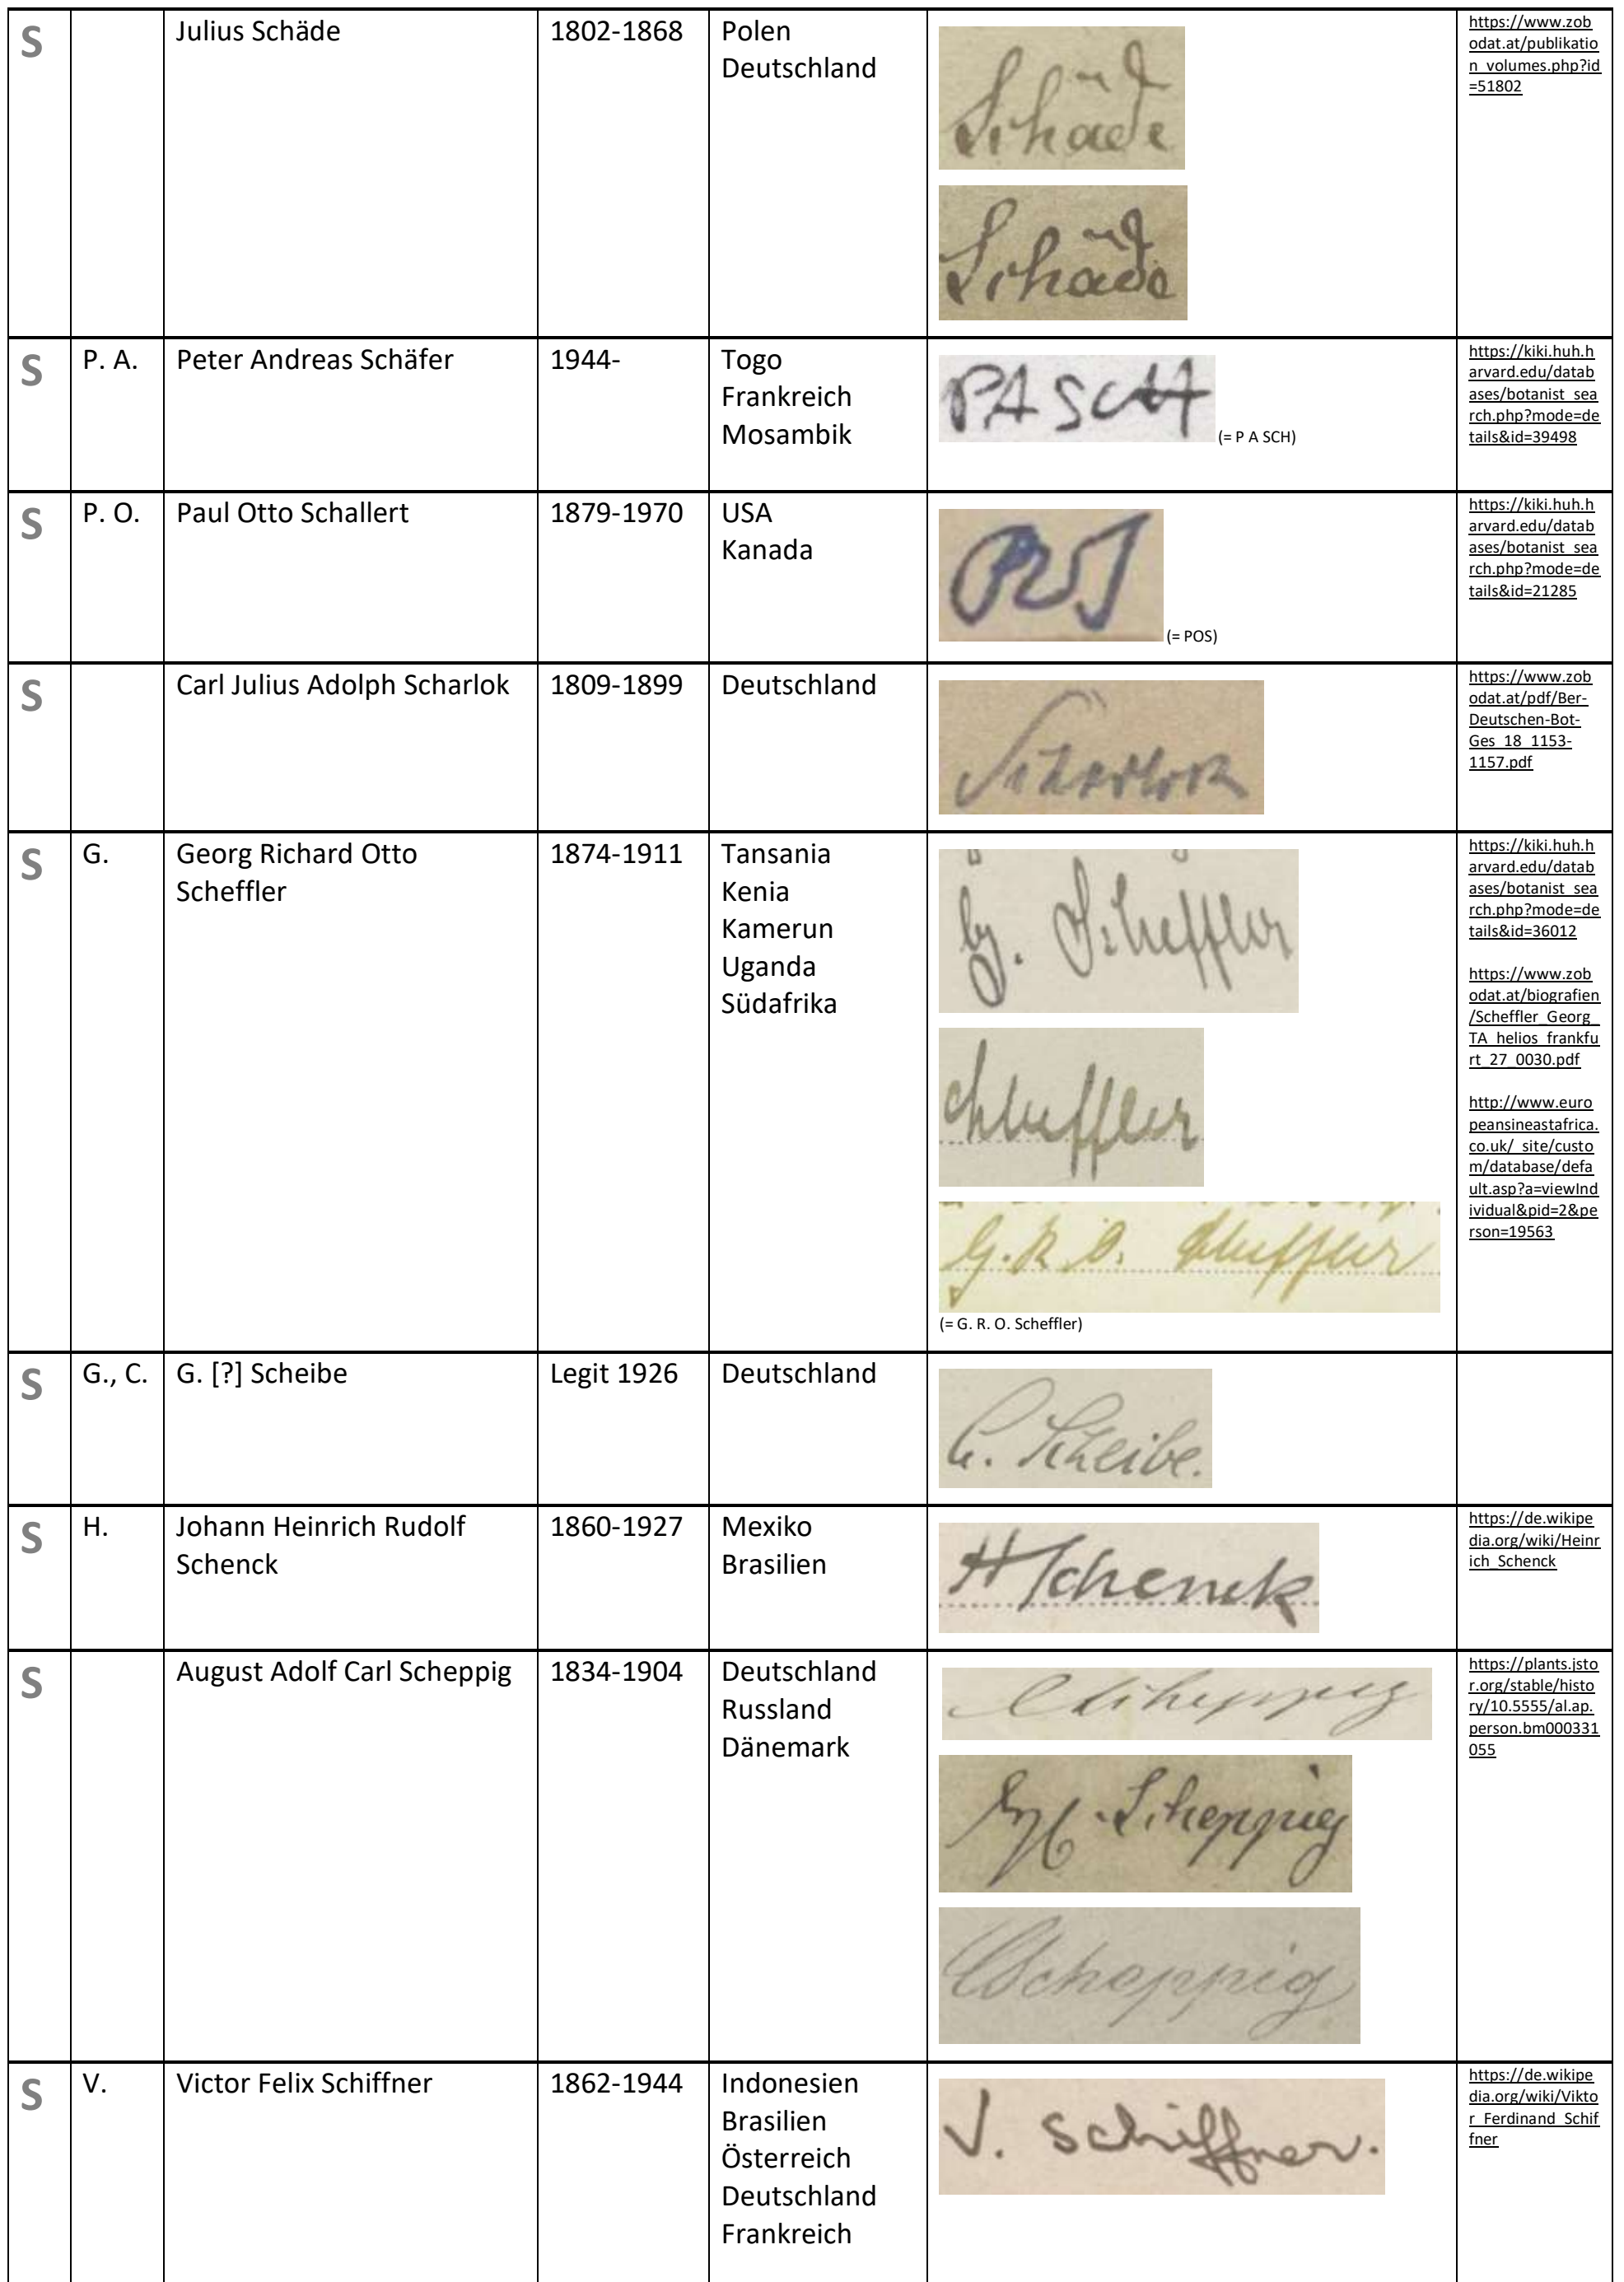 S
Julius Schäde
1802-1868
Polen
Deutschland
Schäde
Schäde
https://www.zob
odat.at/publikatio
n_volumes.php?id
=51802
S
P. A.
Peter Andreas Schäfer
1944-
Togo
Frankreich
Mosambik
PASCH
(= P A SCH)
https://kiki.huh.h
arvard.edu/datab
ases/botanist_sea
rch.php?mode=de
tails&id=39498
S
P. O.
Paul Otto Schallert
1879-1970
USA
Kanada
POS
(= POS)
https://kiki.huh.h
arvard.edu/datab
ases/botanist_sea
rch.php?mode=de
tails&id=21285
S
Carl Julius Adolph Scharlok
1809-1899
Deutschland
Scharlok
https://www.zob
odat.at/pdf/Ber-
Deutschen-Bot-
Ges_18_1153-
1157.pdf
S
G.
Georg Richard Otto
Scheffler
1874-1911
Tansania
Kenia
Kamerun
Uganda
Südafrika
G. Scheffler
Scheffler
G. R. O. Scheffler
(= G. R. O. Scheffler)
https://kiki.huh.h
arvard.edu/datab
ases/botanist_sea
rch.php?mode=de
tails&id=36012
https://www.zob
odat.at/biografien
/Scheffler_Georg_
TA_helios_frankfu
rt_27_0030.pdf
http://www.euro
peansineastafrica.
co.uk/_site/custo
m/database/defa
ult.asp?a=viewInd
ividual&pid=2&pe
rson=19563
S
G., C.
G. [?] Scheibe
Legit 1926
Deutschland
Scheibe.
S
H.
Johann Heinrich Rudolf
Schenck
1860-1927
Mexiko
Brasilien
H Schenck
https://de.wikipe
dia.org/wiki/Heinr
ich_Schenck
S
August Adolf Carl Scheppig
1834-1904
Deutschland
Russland
Dänemark
CScheppig
Scheppig
CScheppig
https://plants.jsto
r.org/stable/histo
ry/10.5555/al.ap.
person.bm000331
055
S
V.
Victor Felix Schiffner
1862-1944
Indonesien
Brasilien
Österreich
Deutschland
Frankreich
V. Schiffner.
https://de.wikipe
dia.org/wiki/Vikto
r_Ferdinand_Schif
fner